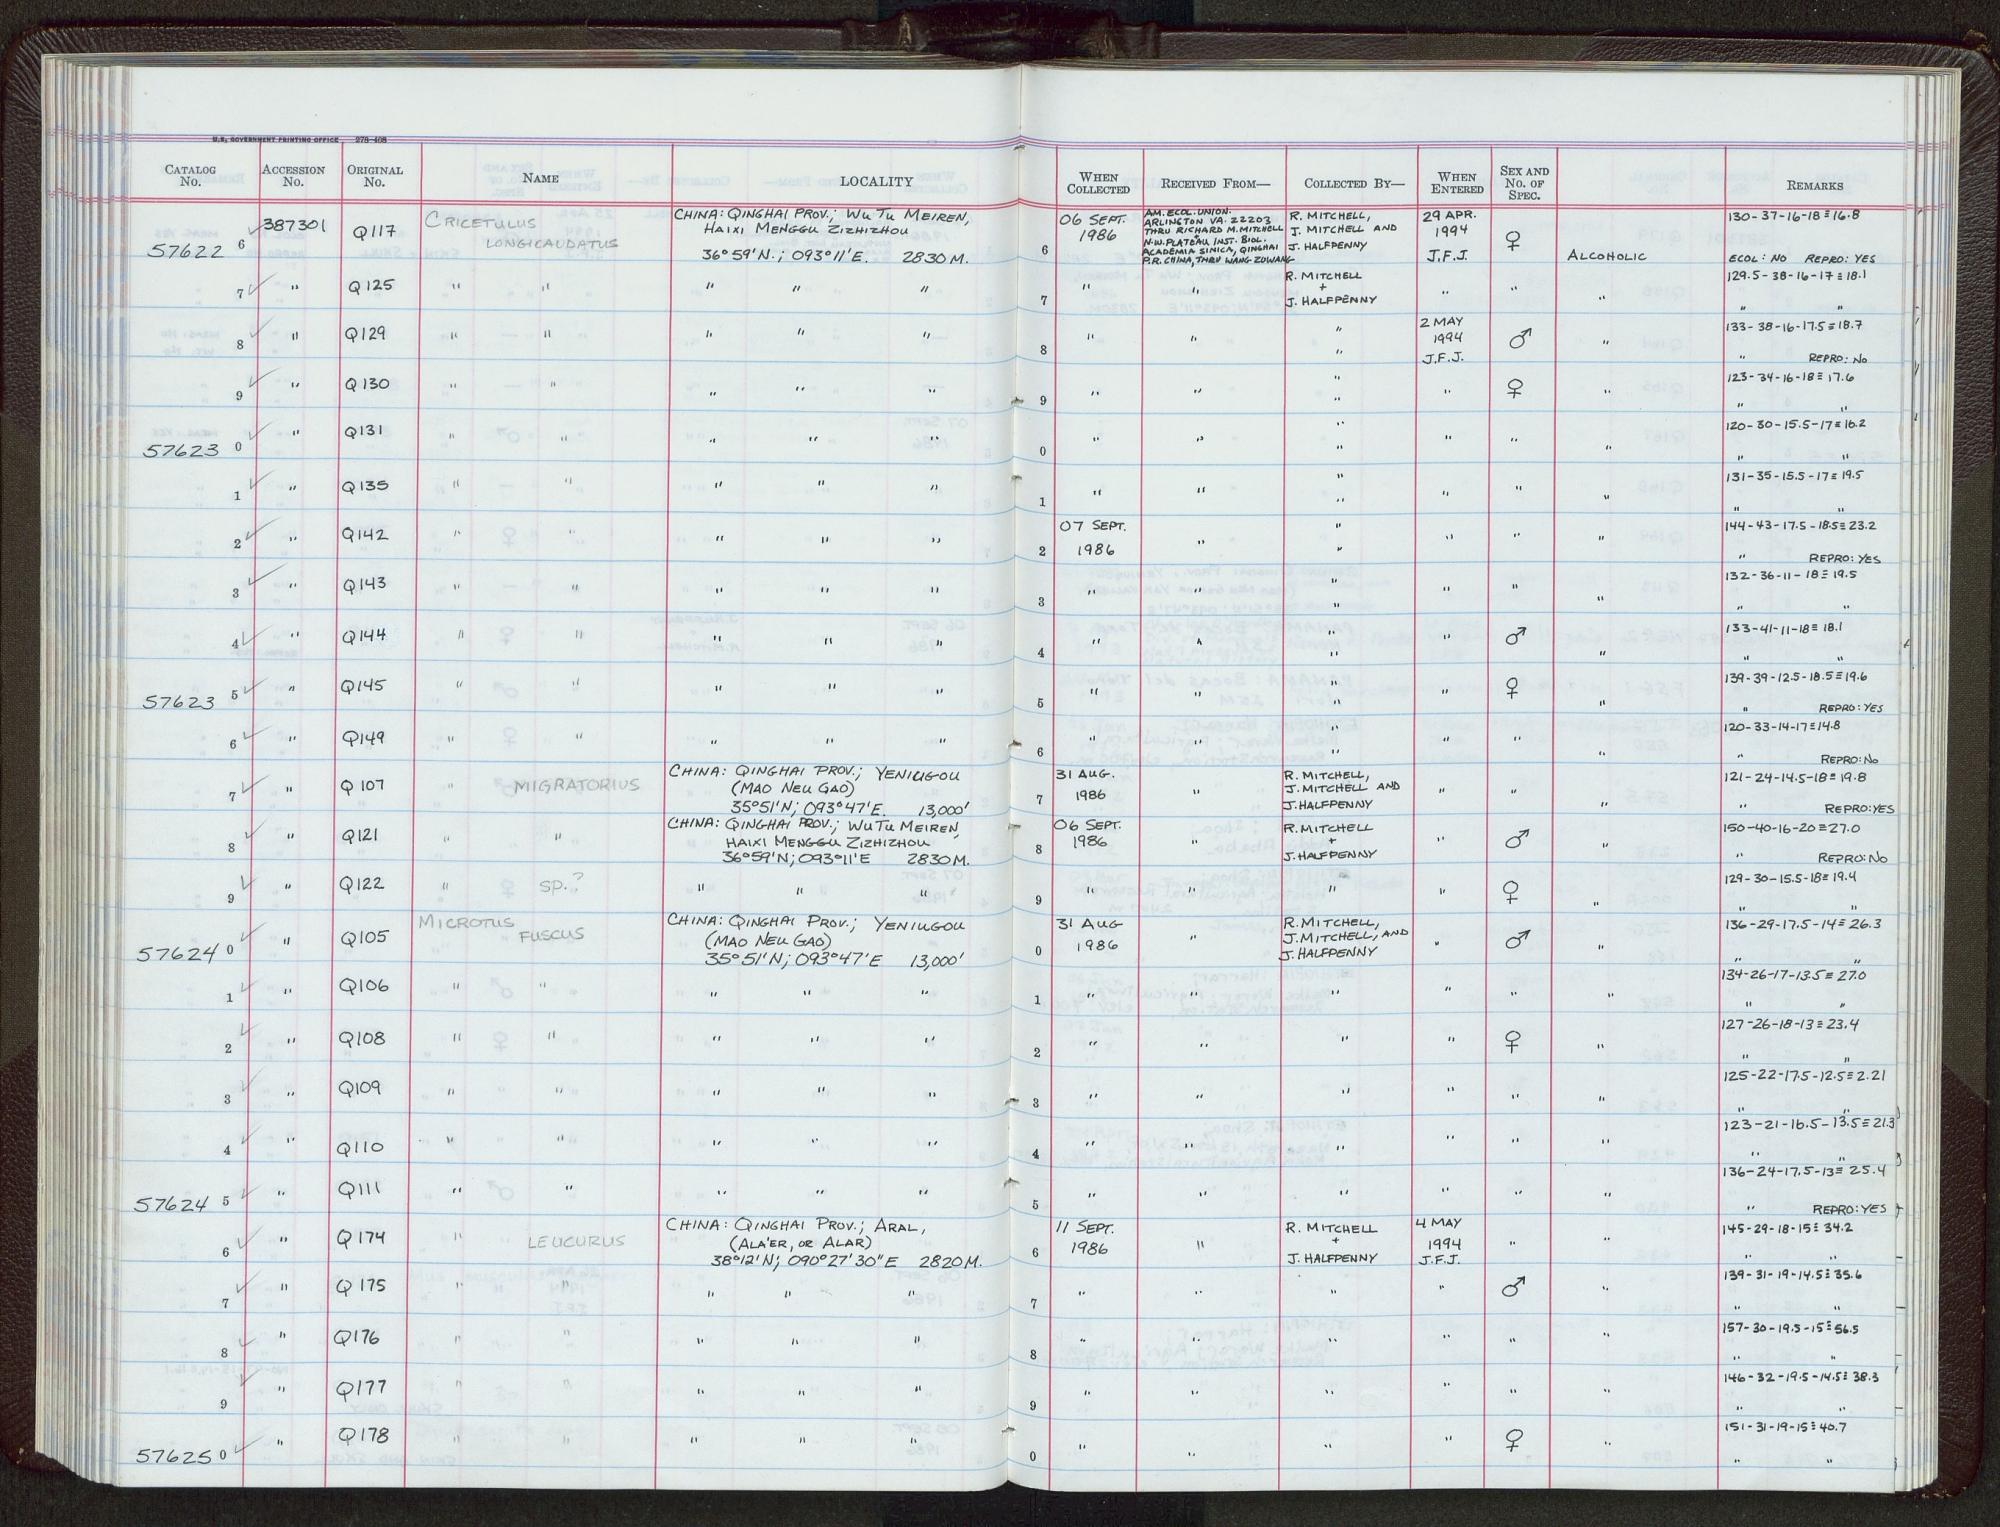 U.S. GOVERNMENT PRINTING OFFICE 278-408
CATALOG No. ACCESSION No. ORIGINAL No. NAME LOCALITY WHEN COLLECTED RECEIVED FROM— COLLECTED BY— WHEN ENTERED SEX AND No. OF SPEC. REMARKS
57622 6 387301 Q117 CRICETULUS LONGICAUDATUS CHINA: QINGHAI PROV.; WU TU MEIREN, HAIXI MENGGU ZIZHIZHOU 36°59'N.; 093°11'E. 2830 M. 6 06 SEPT. 1986 AM. ECOL. UNION. ARLINGTON VA. 22203 THRU RICHARD M. MITCHELL + N.W. PLATEAU INST. BIOL. ACADEMIA SINICA, QINGHAI P.R. CHINA, THRU WANG ZUWANG R. MITCHELL, J. MITCHELL AND J. HALFPENNY 29 APR. 1994 J.F.J. ♀ ALCOHOLIC 130-37-16-18≡16.8 ECOL: NO REPRO: YES
7 " Q125 " " " " " 7 " " R. MITCHELL + J. HALFPENNY " " " 129.5-38-16-17≡18.1 " "
8 " Q129 " " " " " 8 " " " " 2 MAY 1994 J.F.J. ♂ " 133-38-16-17.5≡18.7 " REPRO: NO
9 " Q130 " " " " " 9 " " " " " ♀ " 123-34-16-18≡17.6 " "
57623 0 " Q131 " " " " " 0 " " " " " " " 120-30-15.5-17≡16.2 " "
1 " Q135 " " " " " 1 " " " " " " " 131-35-15.5-17≡19.5 " "
2 " Q142 " " " " " 2 07 SEPT. 1986 " " " " " " 144-43-17.5-18.5≡23.2 " REPRO: YES
3 " Q143 " " " " " 3 " " " " " " " 132-36-11-18≡19.5 " "
4 " Q144 " " " " " 4 " " " " " ♂ " 133-41-11-18≡18.1 " "
57623 5 " Q145 " " " " " 5 " " " " " ♀ " 139-39-12.5-18.5≡19.6 " REPRO: YES
6 " Q149 " " " " " 6 " " " " " " " 120-33-14-17≡14.8 " REPRO: NO
7 " Q107 MIGRATORIUS CHINA: QINGHAI PROV.; YENIUGOU (MAO NEU GAO) 35°51'N; 093°47'E. 13,000' 7 31 AUG. 1986 " R. MITCHELL, J. MITCHELL AND J. HALFPENNY " " " 121-24-14.5-18≡19.8 " REPRO: YES
8 " Q121 " " CHINA: QINGHAI PROV.; WU TU MEIREN, HAIXI MENGGU ZIZHIZHOU 36°59'N; 093°11'E 2830 M. 8 06 SEPT. 1986 " R. MITCHELL + J. HALFPENNY " ♂ " 150-40-16-20≡27.0 " REPRO: NO
9 " Q122 " SP.? " " " 9 " " " " ♀ " 129-30-15.5-18≡19.4 " "
57624 0 " Q105 MICROTUS FUSCUS CHINA: QINGHAI PROV.; YENIUGOU (MAO NEU GAO) 35°51'N; 093°47'E 13,000' 0 31 AUG 1986 " R. MITCHELL, J. MITCHELL, AND J. HALFPENNY " ♂ " 136-29-17.5-14≡26.3 " "
1 " Q106 " " " " " 1 " " " " " " 134-26-17-13.5≡27.0 " "
2 " Q108 " " " " " 2 " " " " ♀ " 127-26-18-13≡23.4 " "
3 " Q109 " " " " " 3 " " " " " " 125-22-17.5-12.5≡2.21 " "
4 " Q110 " " " " " 4 " " " " " " 123-21-16.5-13.5≡21.3 " "
57624 5 " Q111 " " " " " 5 " " " " " " 136-24-17.5-13≡25.4 " REPRO: YES
6 " Q174 " LEUCURUS CHINA: QINGHAI PROV.; ARAL, (ALA'ER, OR ALAR) 38°12'N; 090°27'30"E 2820 M. 6 11 SEPT. 1986 " R. MITCHELL + J. HALFPENNY 4 MAY 1994 J.F.J. " " 145-29-18-15≡34.2 " "
7 " Q175 " " " " " 7 " " " " ♂ " 139-31-19-14.5≡35.6 " "
8 " Q176 " " " " " 8 " " " " " " 157-30-19.5-15≡56.5 " "
9 " Q177 " " " " " 9 " " " " " " 146-32-19.5-14.5≡38.3 " "
57625 0 " Q178 " " " " " 0 " " " " ♀ " 151-31-19-15≡40.7 " "